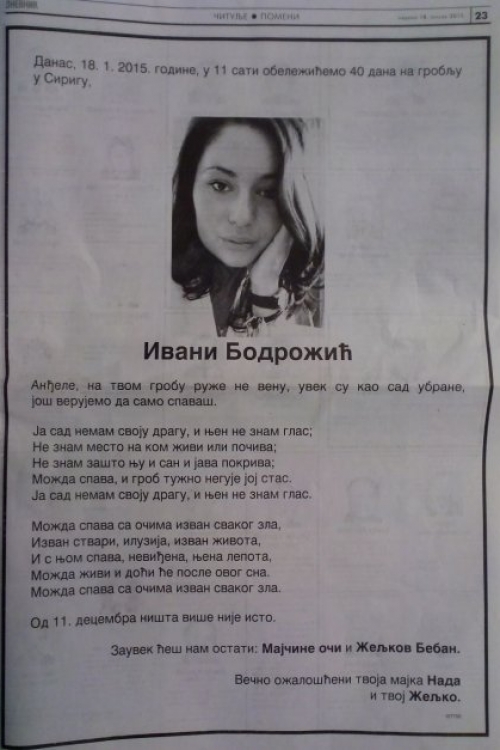 ДНЕВНИК
ЧИТУЉЕ ● ПОМЕНИ
23
Данас, 18. 1. 2015. године, у 11 сати обележићемо 40 дана на гробљу
у Сиригу,
Ивани Бодрожић
Анђеле, на твом гробу руже не вену, увек су као сад убране,
још верујемо да само спаваш.
Ја сад немам своју драгу, и њен не знам глас;
Не знам место на ком живи или почива;
Не знам зашто њу и сан и јава покрива;
Можда спава, и гроб тужно негује јој стас.
Ја сад немам своју драгу, и њен не знам глас.
Можда спава са очима изван сваког зла,
Изван ствари, илузија, изван живота,
И с њом спава, невиђена, њена лепота,
Можда живи и доћи ће после овог сна.
Можда спава са очима изван сваког зла.
Од 11. децембра ништа више није исто.
Заувек ћеш нам остати: Мајчине очи и Жељков Бебан.
Вечно ожалошћени твоја мајка Нада
и твој Жељко.